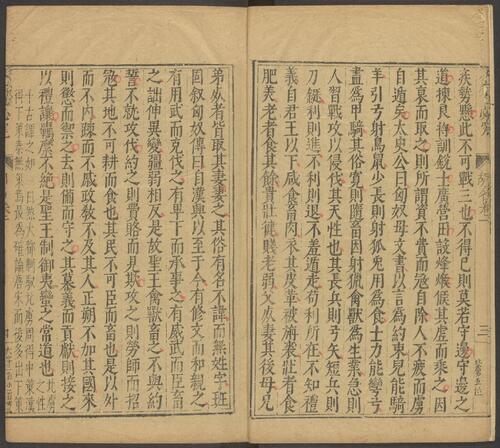 疾勢懸此不可戰三也不得已則莫若守邊守之
道揀良將訓銳士廣營田設烽候候其虛而乘之因
其衰而取之則所謂資不費而寇自除人不疲而虜
自遁矣太史公曰匈奴毋文書以言為約束兒能騎
羊引弓射鳥鼠少長則射狐兔用為食士力能彎弓
盡為甲騎其俗寬則隨畜因射獵禽獸為生業急則
人習戰攻以侵伐其天性也其長兵則弓矢短兵則
刀鋋利則進不利則退不羞遁走苟利所在不知禮
義自君王以下咸食畜肉衣其皮革被旃裘壯者食
肥美老者食其餘貴壯健賤老弱父死妻其後母兄
弟死者皆取其妻妻之其俗有名不諱而無姓字班
固叙匈奴傳曰自漢興以至于今有修文而和親之
有用武而克伐之有卑下而承事之有威武而臣畜
之詘伸異變疆弱相反是故聖王禽獸畜之不與約
誓不就攻伐約之則費賂而見欺攻之則勞師而招
寇其地不可耕而食也其民不可臣而畜也是以外
而不內疎而不戚政教不及其人正朔不加其國來
則懲而禦之去則備而守之其慕義而貢獻則接之
以禮讓羈縻不絕是聖王制御夷蠻之常道也